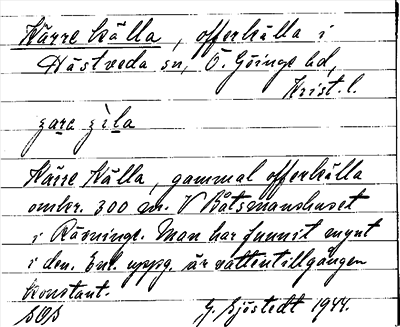 Kärre källa, offerkälla i
Hästveda sn, Ö. Göinge hd,
Krist. l.
Kärre källa, gammal offerkälla
omkr. 300 m. V Båtsmanshuset
i Rävninge. Man har funnit mynt
i den. Enl. uppg. är vattentillgången
konstant.
G. Sjöstedt 1944.